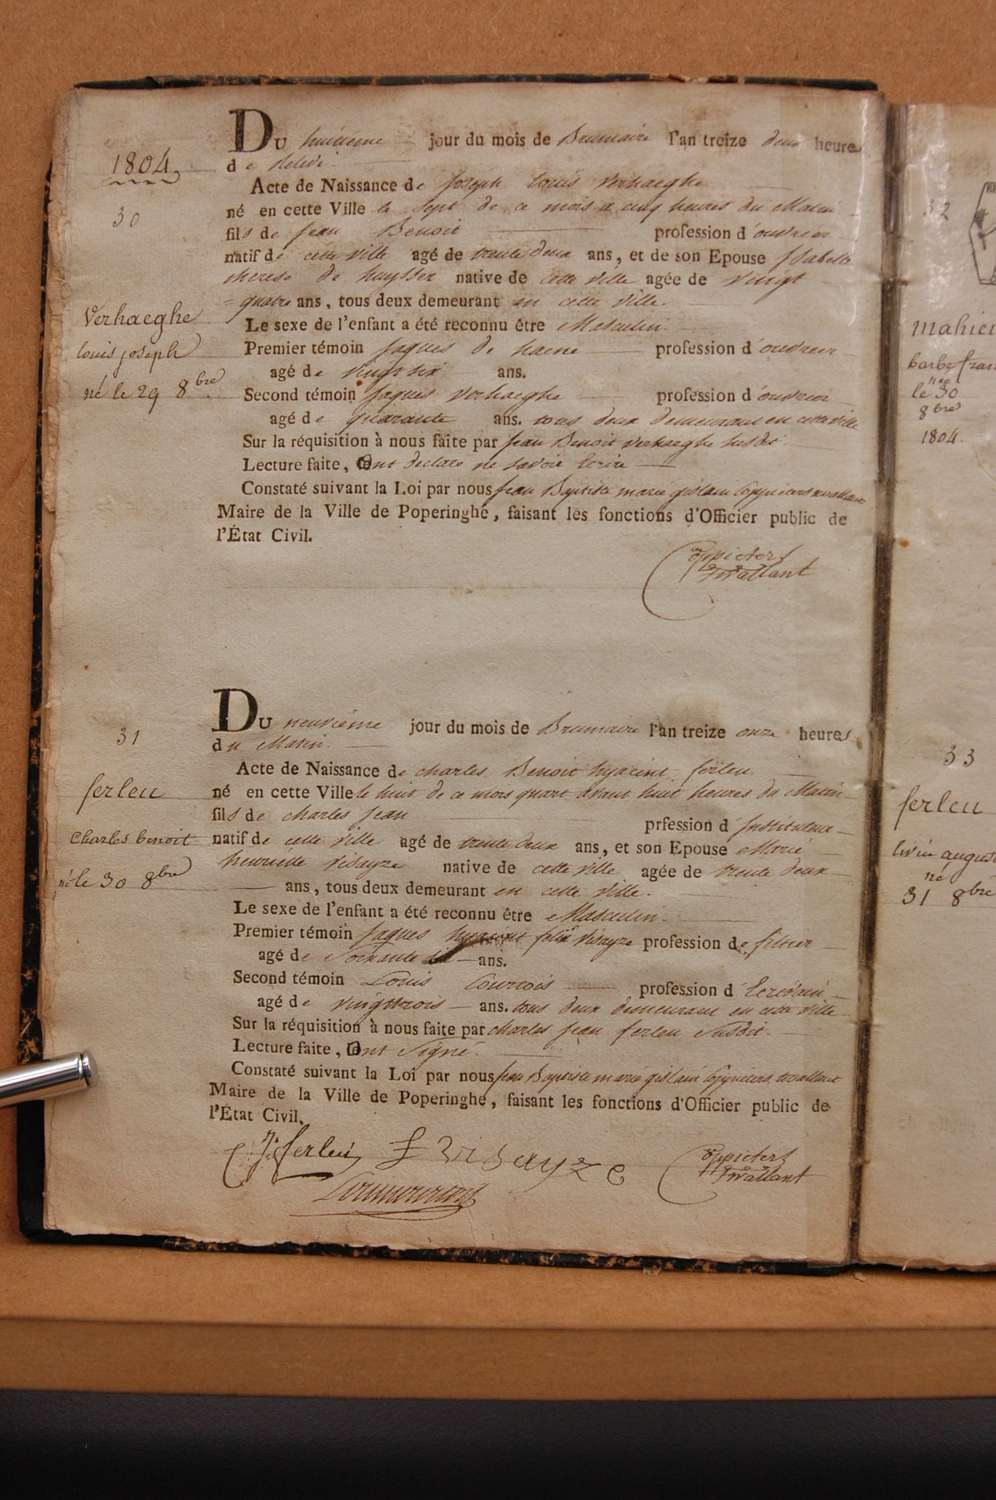 1804
30
Verhaeghe
louis joseph
né le 29 8bre
Du huitieme jour du mois de Brumaire l'an treize deux heures
de relevé
Acte de Naissance de Joseph Louis Verhaeghe
né en cette Ville le sept de ce mois a cinq heures du Matin
fils de jean Benoit profession d'ouvrier
natif de cette ville agé de trente deux ans, et de son Epouse Isabelle
therese de huysser native de cette ville agée de vingt
= quatre ans, tous deux demeurant en cette ville.
Le sexe de l'enfant a été reconnu être Masculin
Premier témoin Jaques de haene profession d'ouvrier
agé de vingt six ans.
Second témoin Jaques verhaeghe profession d'ouvrier
agé de quarante ans. tous deux demeurant en cette ville
Sur la réquisition à nous faite par jean Benoit verhaeghe susdit
Lecture faite, ont declaré ne savoir Ecrire
Constaté suivant la Loi par nous jean Baptiste marie gislain Coppieters wallant
Maire de la Ville de Poperinghe, faisant les fonctions d'Officier public de
l'État Civil.
Coppieters
Twallant
31
ferleu
Charles benoit
né le 30 8bre
Du neuvième jour du mois de Brumaire l'an treize onze heures
du Matin
Acte de Naissance de charles Benoit hyacint ferleu
né en cette Ville le huit de ce mois quart avant huit heures du Matin
fils de charles jean prfession d'Instituteur
natif de cette ville agé de trente deux ans, et son Epouse Marie
henriette visayze native de cette ville agée de trente deux
ans, tous deux demeurant en cette ville.
Le sexe de l'enfant a été reconnu être Masculin.
Premier témoin Jaques hyacint felix visayze profession de
agé de soixante ans.
Second témoin Louis Courtois profession d'Ecrivain
agé de vingt trois ans. tous deux demeurant en cette ville
Sur la réquisition à nous faite par charles jean ferleu susdit
Lecture faite, ont signé.
Constaté suivant la Loi par nous jean Baptiste marie gislain Coppieters twallant
Maire de la Ville de Poperinghe, faisant les fonctions d'Officier public de
l'État Civil.
C. J. ferleu
F visayze
Coppieters
Twallant
32
mahieu
barbe fran
née
le 30
8bre
1804.
33
ferleu
livin august
né
31 8bre